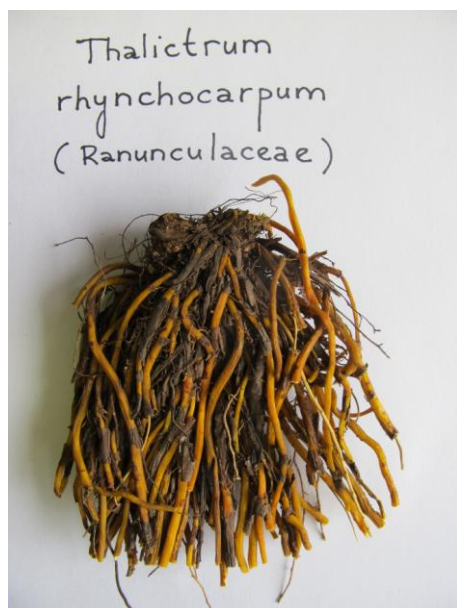 Thalictrum
rhynchocarpum
(Ranunculaceae)